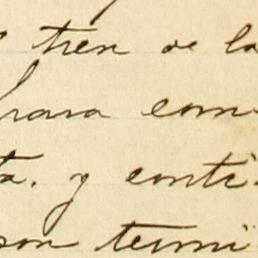 tren de la
para com
ta. y conti
son termi